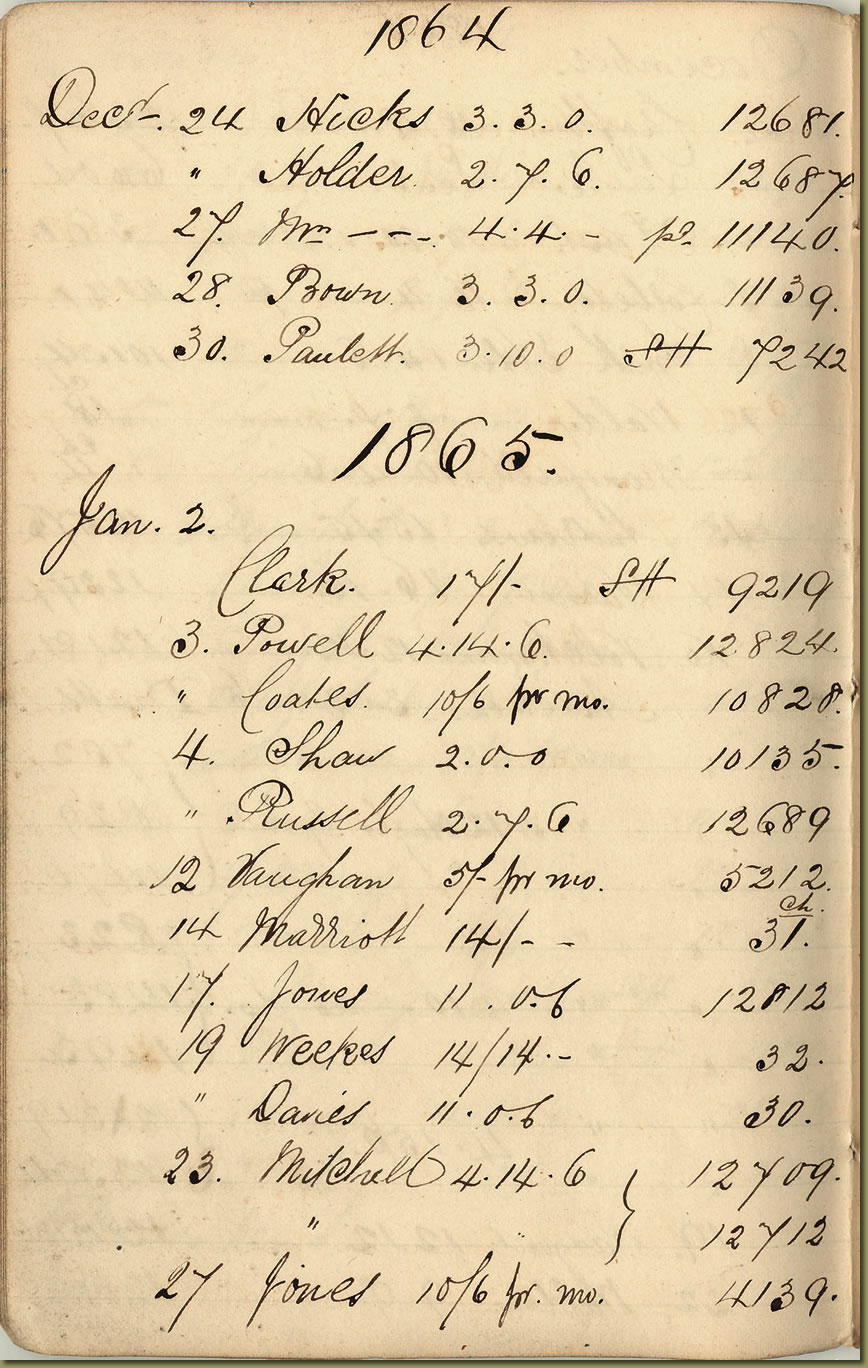 1864
Decr. 24 Hicks 3. 3. 0. 12681.
" Holder 2. 7. 6. 12687.
27. Mrs — — -. 4. 4. - pd. 11140.
28. Bown. 3. 3. 0. 11139.
30. Paulett. 3. 10. 0 SH 7242
1865.
Jan. 2.
Clark. 17/- SH 9219
3. Powell 4. 14. 6. 12824.
" Coates. 10/6 pr mo. 10828.
4. Shaw 2. 0. 0 10135.
" Russell 2. 7. 6 12689
12 Vaughan 5/- pr mo. 5212.
ch.
14 Marriott 14/- - 31.
17. Jones 11. 0. 6 12812
19 Weekes 14/14. - 32.
" Davies 11. 0. 6 30.
23. Mitchell 4. 14. 6 } 12709.
" 12712
27 Jones 10/6 pr. mo. 4139.